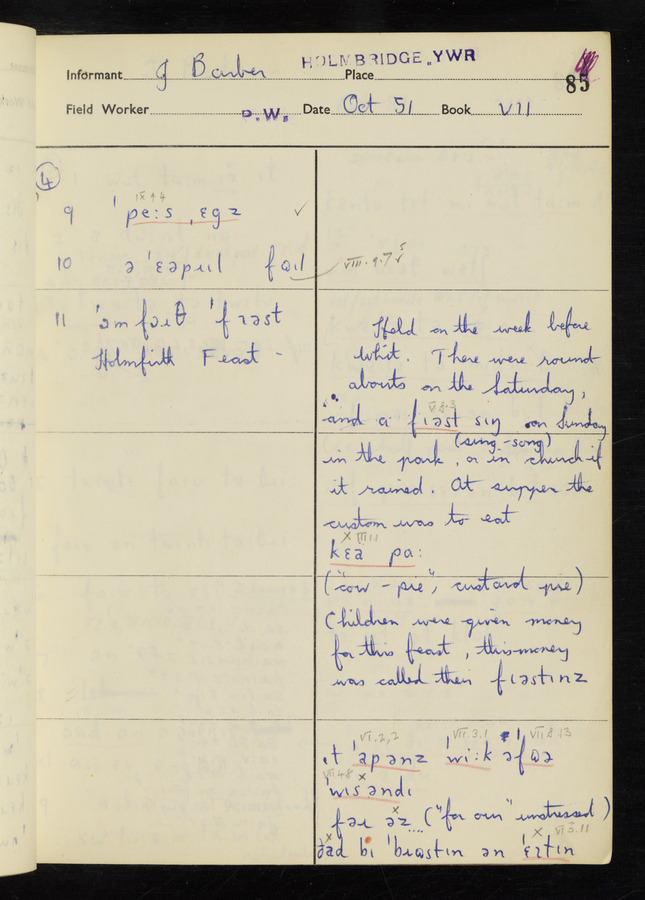 Informant J Barber HOLMBRIDGE, YWR Place 85
Field Worker P.W. Date Oct 51 Book VII
4
9 ˈpe:s ˌɛgz ✓
10 ə ˈɛəpɹɪl fɷɪl VIII.9.7
11
Holmfirth Feast -
Held on the week before
Whit. There were round
abouts on the Saturday,
V8.3
and a fɪəst sɪŋ on Sunday
(sing-song)
in the park, or in church if
it rained. At supper the
custom was to eat
kɛə pa:
("cow-pie", custard pie)
Children were given money
for this feast, this money
was called their fɪəstɪnz
VI.2,2 VII.3.1 VII 8.13
ɪt ˈapənz ˈwi:k əfɷə
VII 4 8 x
ˈwɪsəndɪ
fəɹ əz ("for our" unstressed)
x VI 3.11
ðad bɪ ˈbɹɷstɪn ən ˈɛʒtɪn